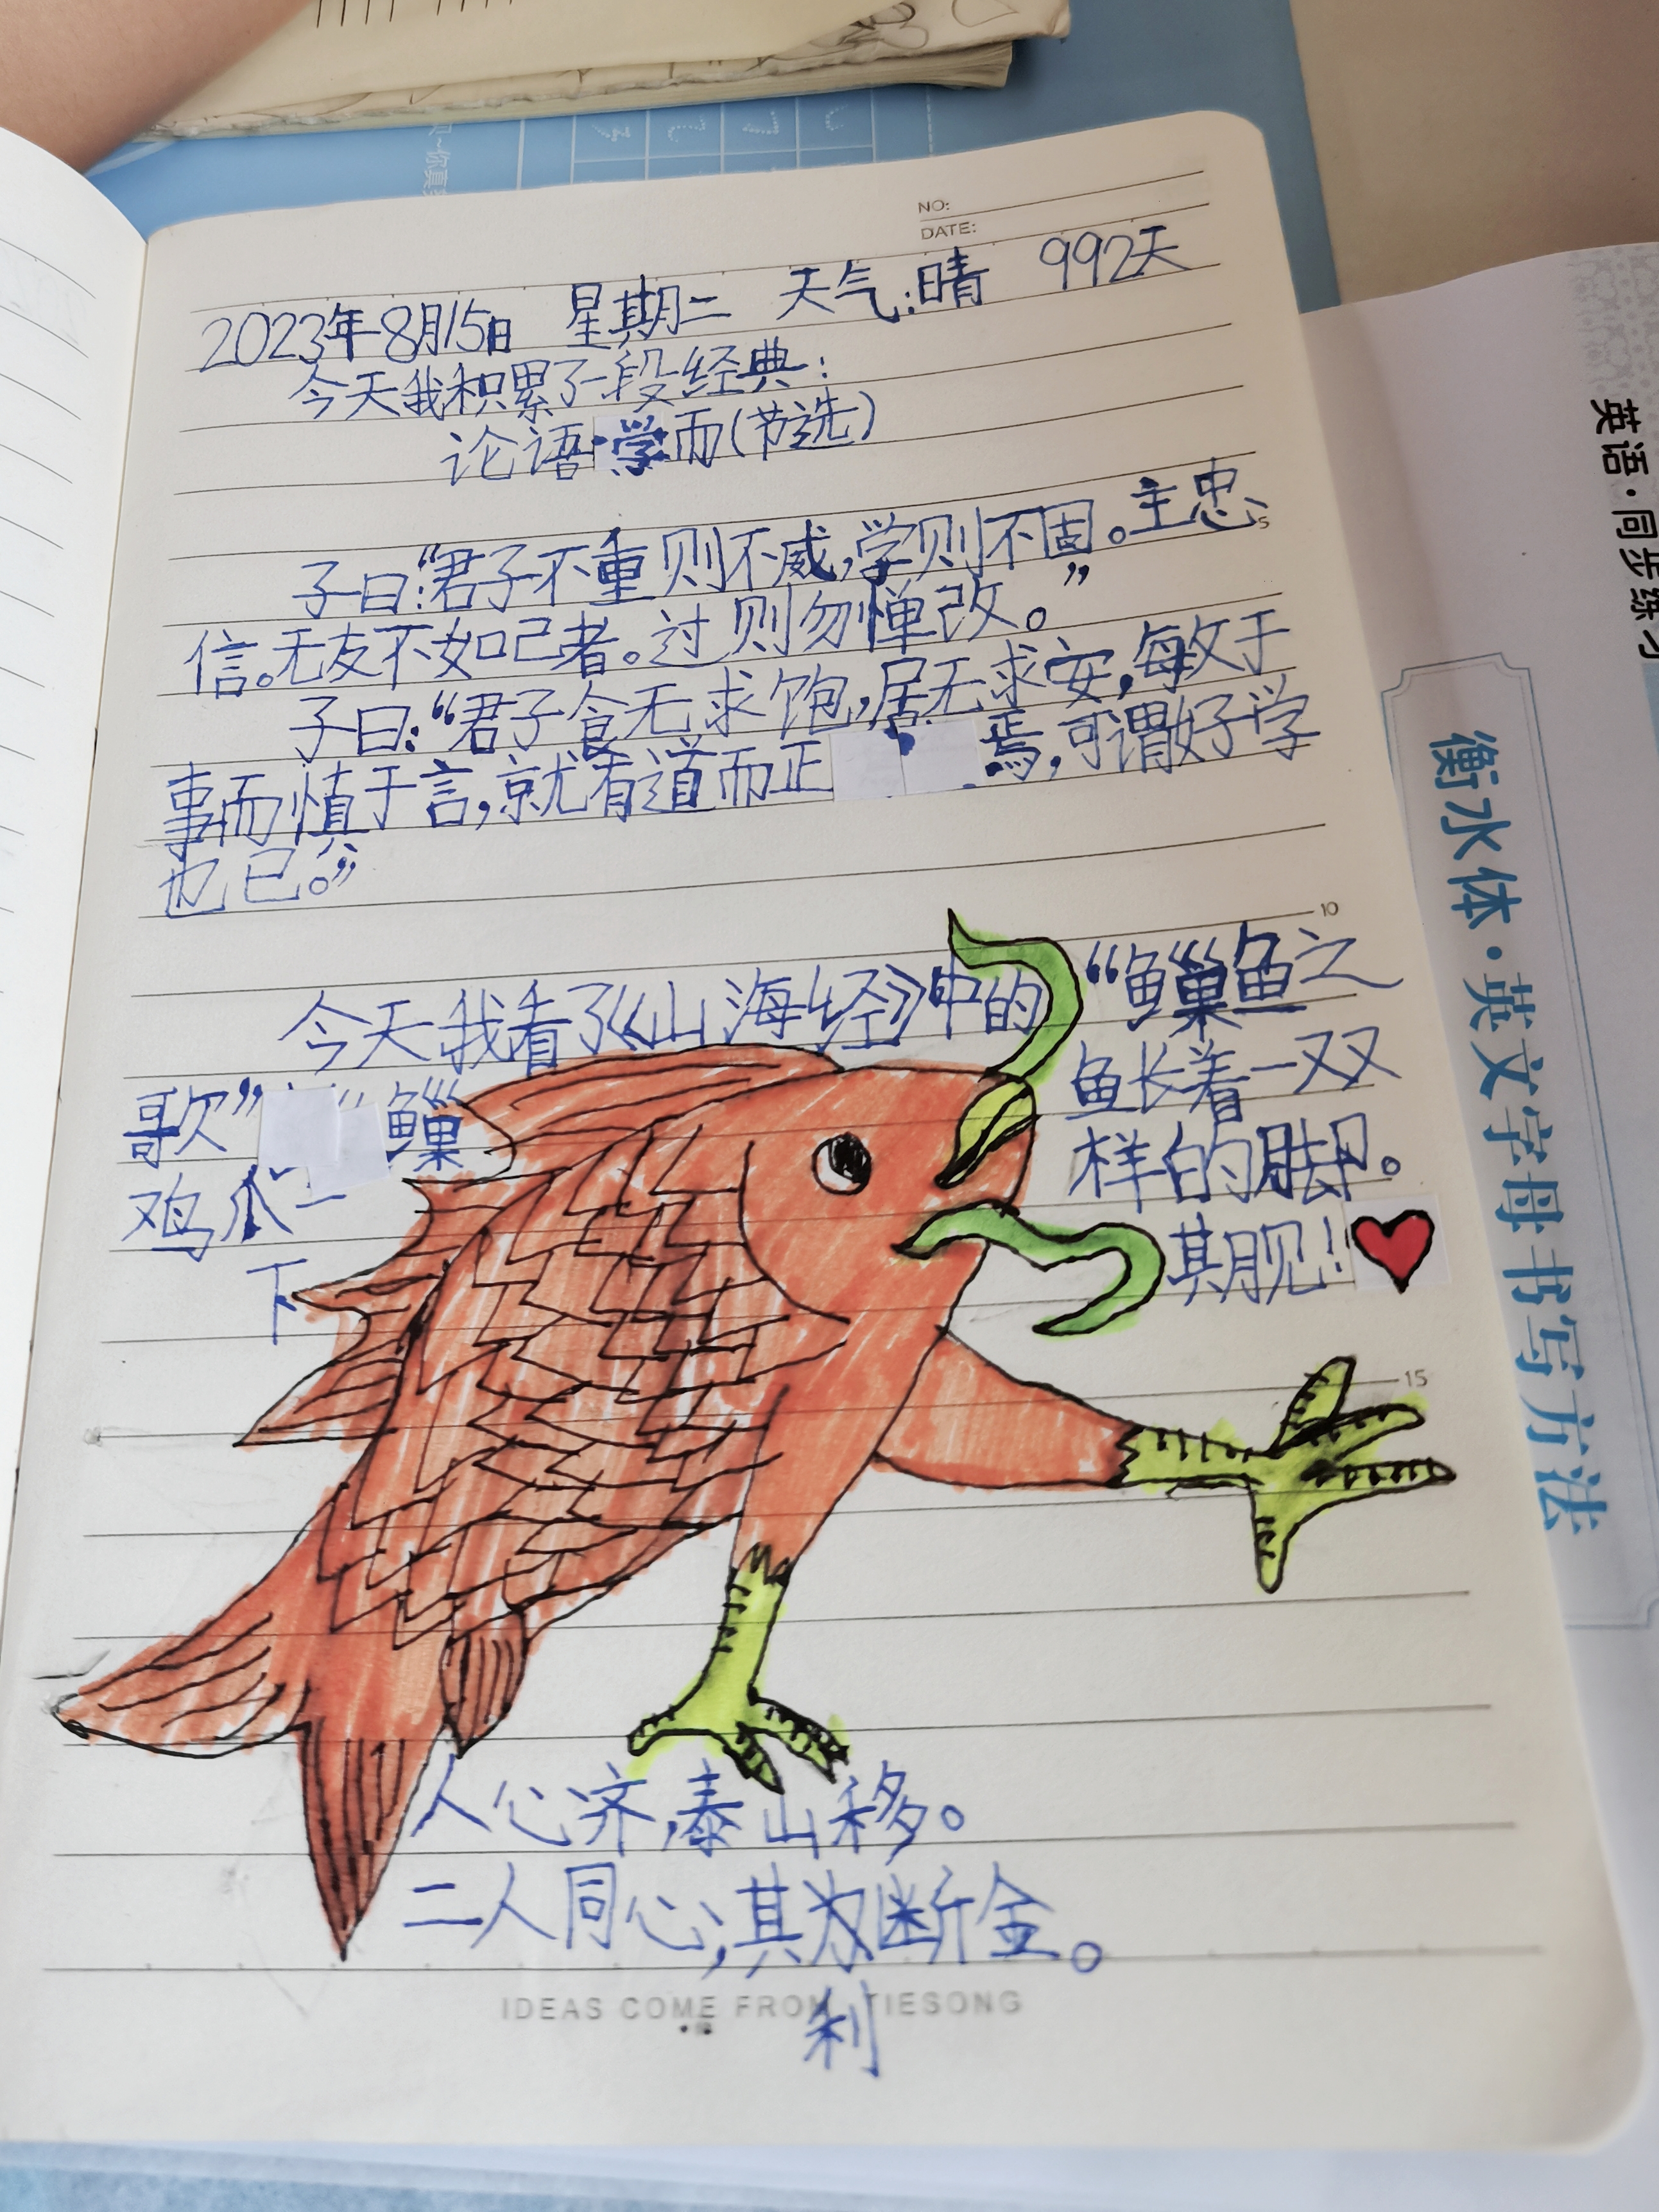 NO:
DATE:
2023年8月15日 星期二 天气:晴 992天
今天我积累了一段经典:
论语·学而(节选)
子曰:“君子不重则不威,学则不固。主忠、
信。无友不如己者。过则勿惮改。”
子曰:“君子食无求饱,居无求安,每攵于
事而慎于言,就有道而正焉,可谓好学
也已。”
今天我看了《山海经》中的“鱼巢鱼之
歌”鱼巢鱼长着一双又
鸡爪一样的脚。
下期见!
人心济,泰山移。
二人同心,其为断金。
利
5
10
15
IDEAS COME FROM TIESONG
英语·同步练习
衡水体·英文字母书写方法